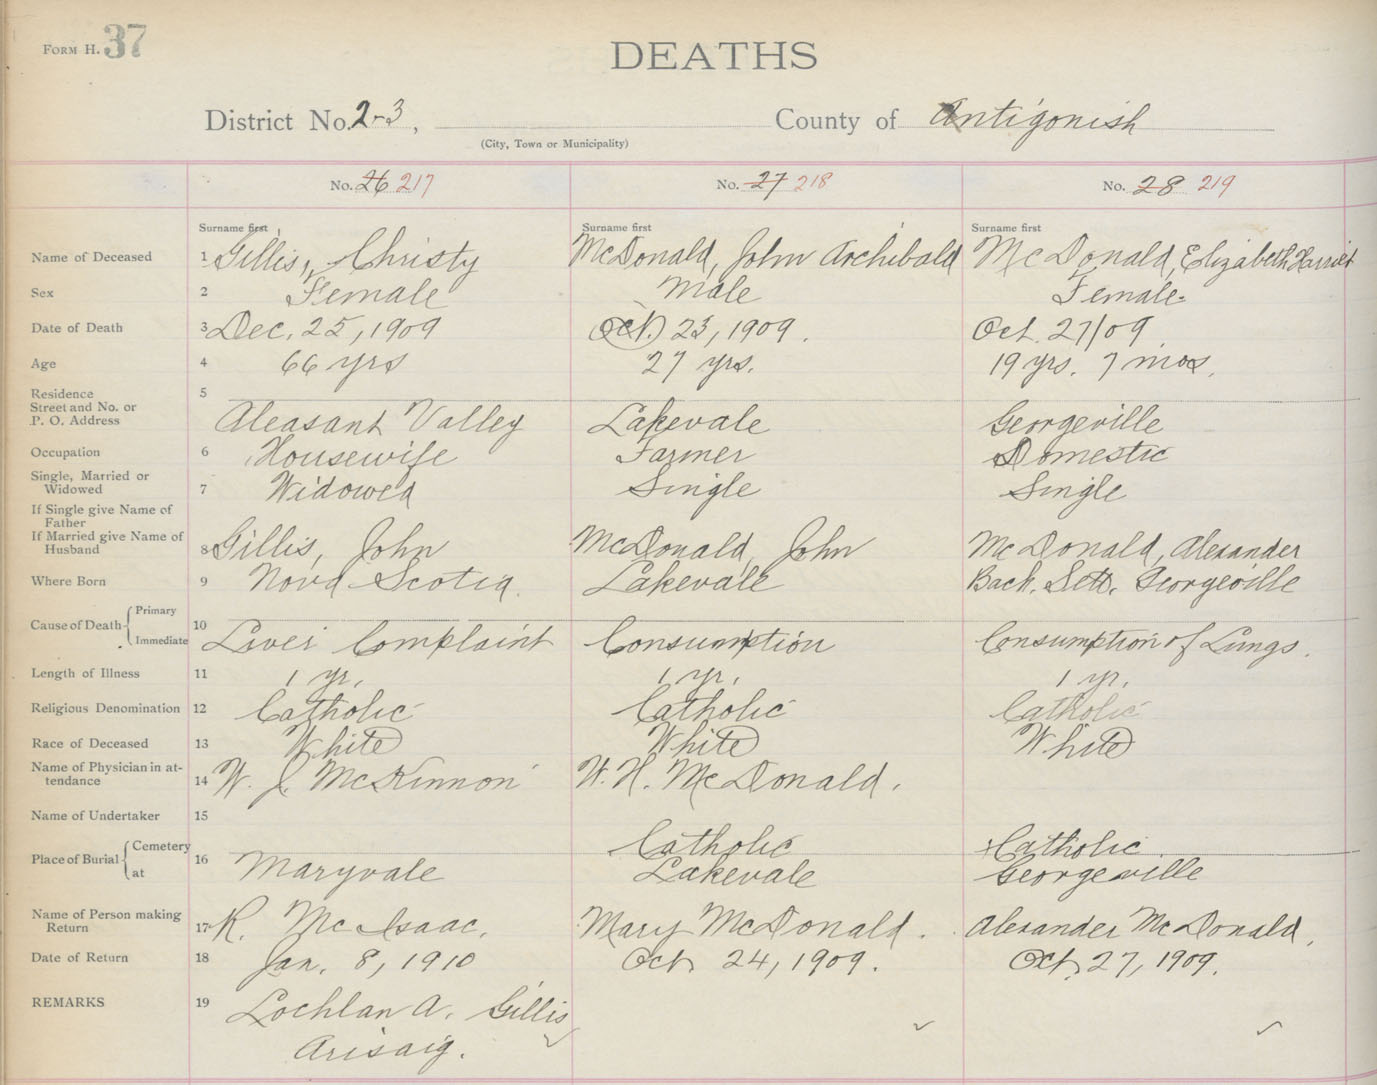 FORM H. 37
DEATHS
District No. 2-3, County of Antigonish
(City, Town or Municipality)
No. 26 217 No. 27 218 No. 28 219
Surname first Surname first Surname first
Name of Deceased 1 Gillis, Christy McDonald, John Archibald McDonald, Elizabeth Harriet
Sex 2 Female Male Female
Date of Death 3 Dec. 25, 1909 Oct. 23, 1909. Oct. 27/09
Age 4 66 yrs 27 yrs. 19 yrs. 7 mos.
Residence 5
Street and No. or
P. O. Address Pleasant Valley Lakevale Georgeville
Occupation 6 Housewife Farmer Domestic
Single, Married or
Widowed 7 Widowed Single Single
If Single give Name of
Father
If Married give Name of
Husband 8 Gillis, John McDonald, John McDonald, Alexander
Where Born 9 Nova Scotia. Lakevale Back. Sett. Georgeville
Cause of Death Primary 10
Immediate Liver Complaint Consumption Consumption of Lungs.
Length of Illness 11 1 yr. 1 yr. 1 yr.
Religious Denomination 12 Catholic Catholic Catholic
Race of Deceased 13 White White White
Name of Physician in at-
tendance 14 W. J. McKinnon W. H. McDonald.
Name of Undertaker 15
Place of Burial Cemetery 16 Catholic Catholic
at Maryvale Lakevale Georgeville
Name of Person making
Return 17 R. McIsaac. Mary McDonald. Alexander McDonald.
Date of Return 18 Jan. 8, 1910 Oct. 24, 1909. Oct. 27, 1909.
REMARKS 19 Lochlan A. Gillis
Arisaig.